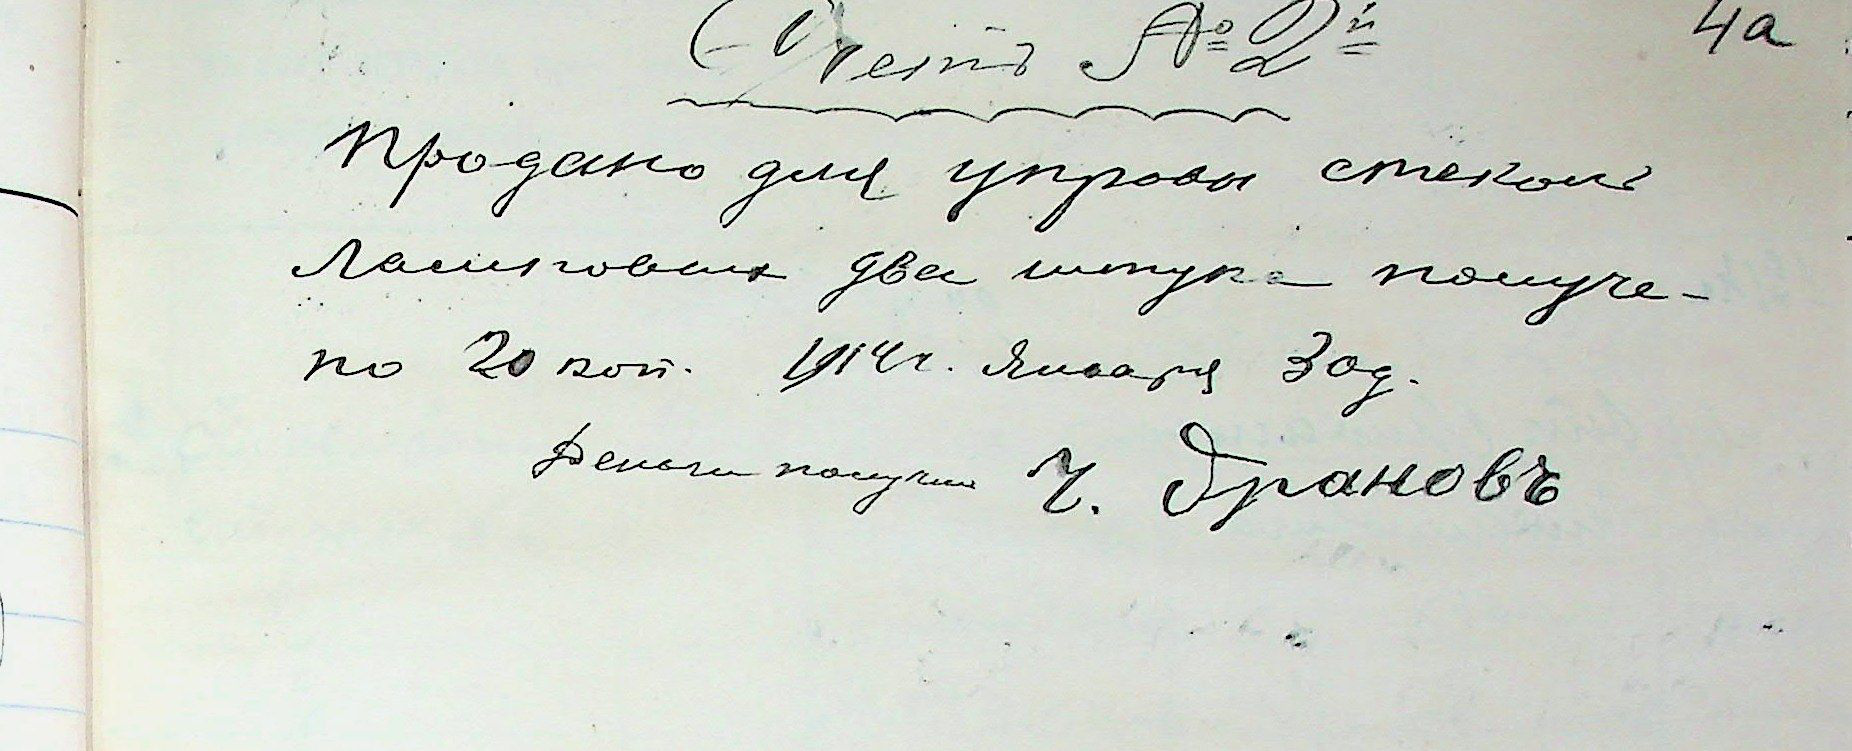 4а
Счетъ № 2й
Продано для управы стеколъ
Ламповых два штука получе-
но 20 коп. 1914 г. Января 3 од.
Деньги получил Ч. Драновъ